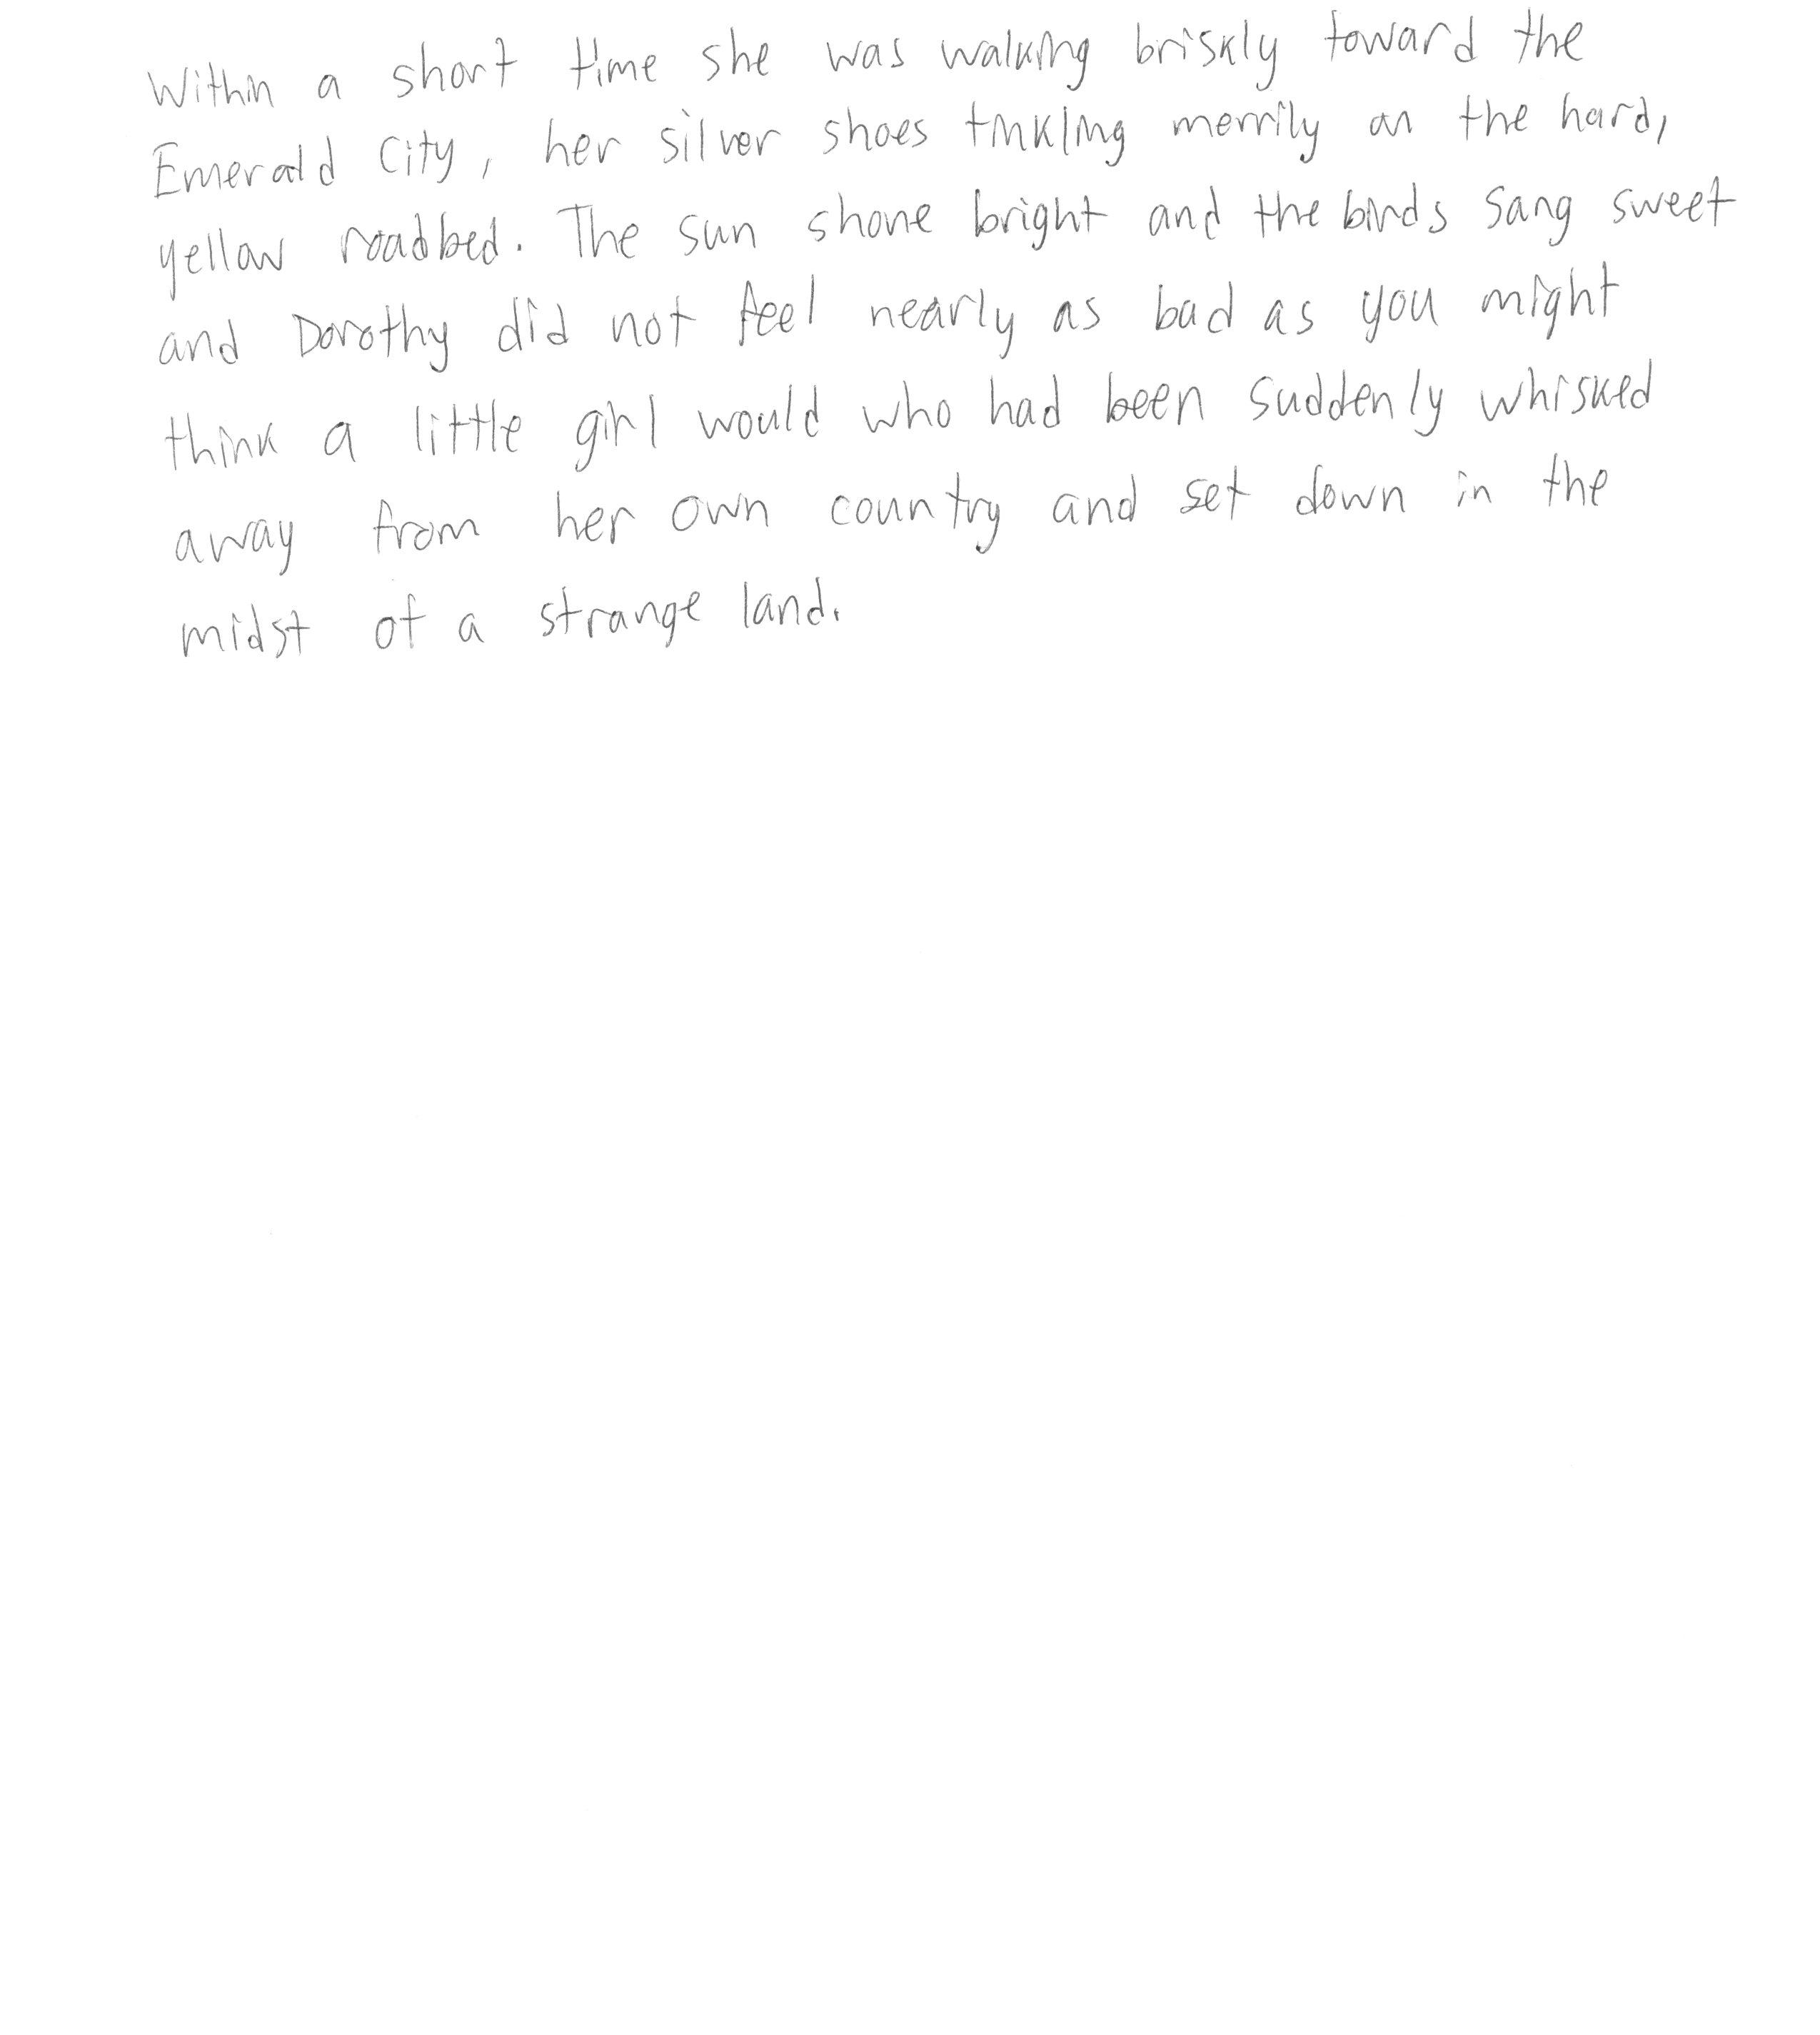 Within a short time she was walking briskly toward the
Emerald City, her silver shoes tinkling merrily on the hard,
yellow roadbed. The sun shone bright and the birds sang sweet
and Dorothy did not feel nearly as bad as you might
think a little girl would who had been suddenly whisked
away from her own country and set down in the
midst of a strange land.